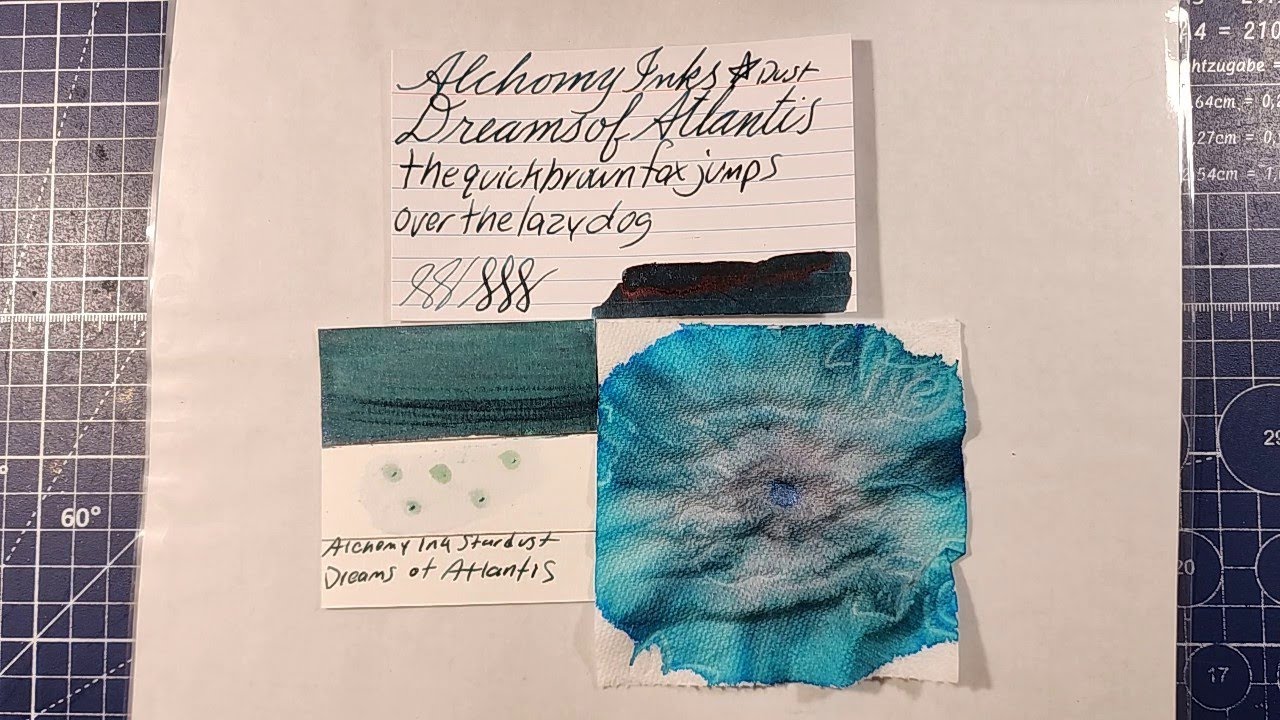 Alchomy Inks ☆Dust
Dreams of Atlantis
the quick brown fox jumps
over the lazy dog
Alchemy Ink Stardust
Dreams of Atlantis
60°
4 = 210
htzugabe =
64cm = 0,
27cm = 0,
54cm = 1,
29
20
17